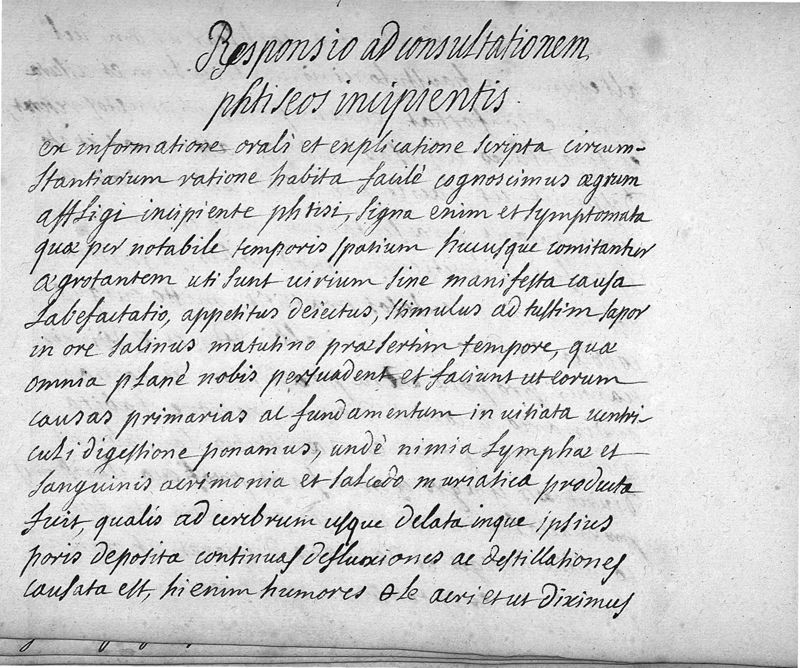 Responsio ad consultationem
phtiseos incipientis.
ex informatione orali et explicatione scripta circum-
stantiarum ratione habita facilè cognoscimus ægrum
affligi incipiente phtisi, signa enim et symptomata
quæ per notabile temporis spatium hucusque comitantur
ægrotantem uti sunt virium sine manifesta causa
labefactatio, appetitus deiectus, stimulus ad tussim sapor
in ore salinus matutino præsertim tempore, quæ
omnia planè nobis persuadent et faciunt ut eorum
causas primarias ac fundamentum in vitiata ventri-
culi digestione ponamus, undè nimia lymphæ et
sanguinis acrimonia et salcedo muriatica producta
fuit, qualis ad cerebrum usque delata inque ipsius
poris deposita continuas defluxiones ac destillationes
causata est, hi enim humores acri et ut diximus